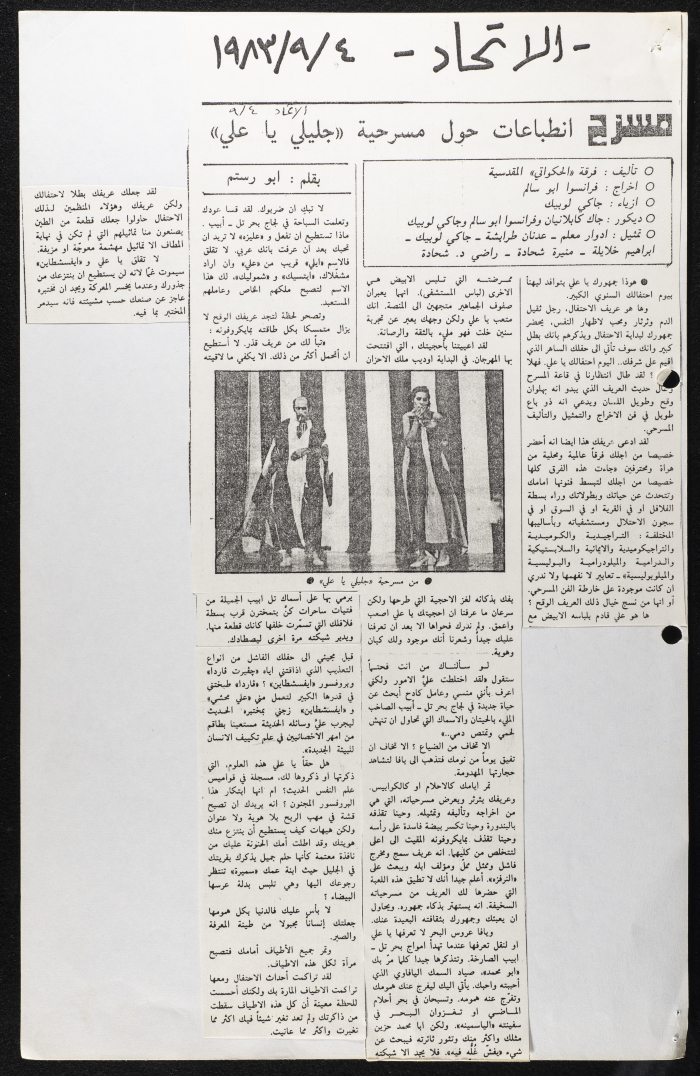 - الاتحاد - ١٩٨٣/٩/٤
الاتحاد ٩/٤
مسرح
انطباعات حول مسرحية «جليلي يا علي»
○ تأليف : فرقة «الحكواتي» المقدسية
○ اخراج : فرانسوا ابو سالم
○ ازياء : جاكي لوبيك
○ ديكور : جاك كابلانيان وفرانسوا ابو سالم وجاكي لوبيك
○ تمثيل : ادوار معلم ـ عدنان طرابشة ـ جاكي لوبيك ـ
ابراهيم خلايلة ـ منيرة شحادة ـ راضي د. شحادة
بقلم : ابو رستم
● هوذا جمهورك يا علي يتوافد ليهنأ
بيوم احتفالك السنوي الكبير.
وها هو عريف الاحتفال، رجل ثقيل
الدم وثرثار ومحب لاظهار النفس، يحضر
جمهورك لبداية الاحتفال ويذكرهم بانك بطل
كبير وانك سوف تأتي الى حفلك الساهر الذي
اقيم على شرفك.. اليوم احتفالك يا علي. فهلا
؟ لقد طال انتظارنا في قاعة المسرح
وطال حديث العريف الذي يبدو انه بهلوان
وقح وطويل اللسان ويدعي انه ذو باع
طويل في فن الاخراج والتمثيل والتأليف
المسرحي.
لقد ادعى عريفك هذا ايضا انه أحضر
خصيصا من اجلك فرقاً عالمية ومحلية من
هواة ومحترفين «جاءت هذه الفرق كلها
خصيصا من اجلك لتبسط فنونها امامك
وتتحدث عن حياتك وبطولاتك وراء بسطة
الفلافل او في القرية او في السوق او في
سجون الاحتلال ومستشفياته وبأساليبها
المختلفة : التراجيدية والكوميدية
والتراجيكوميدية والايمائية والسلابستيكية
والدرامية والميلودرامية والبوليسية
والميلوبوليسية» ـ تعابير لا نفهمها ولا ندري
ان كانت موجودة على خارطة الفن المسرحي.
أو انها من نسج خيال ذلك العريف الوقح ؟
ها هو علي قادم بلباسه الابيض مع
ممرضته التي تلبس الابيض هي
الاخرى (لباس المستشفى). انهما يعبران
صفوف الجماهير متجهين الى المنصة. انك
متعب يا علي ولكن وجهك يعبر عن تجربة
سنين خلت فهو مليء بالثقة والرصانة.
لقد اعييتنا بأحجيتك ، التي افتتحت
بها المهرجان. في البداية اوديب ملك الاحزان
يفك بذكائه لغز الاحجية التي طرحها ولكن
سرعان ما عرفنا ان احجيتك يا علي اصعب
واعمق. ولم ندرك فحواها الا بعد ان تعرفنا
عليك جيداً وشعرنا أنك موجود ولك كيان
وهوية.
لو سألناك من انت فحتماً
ستقول «لقد اختلطت عليّ الامور ولكني
اعرف بأنني منسي وعامل كادح أبحث عن
حياة جديدة في لجاج بحر تل ـ أبيب الصاخب
المليء بالحيتان والاسماك التي تحاول ان تنهش
لحمي وتمتص دمي..»
الا تخاف من الضياع ؟ الا تخاف ان
تفيق يوماً من نومك فتذهب الى يافا لتشاهد
حجارتها المهدومة.
تمر ايامك كالاحلام او كالكوابيس.
وعريفك يثرثر ويعرض مسرحياته، التي هي
من اخراجه وتأليفه وتمثيله. وحينا تقذفه
بالبندورة وحينا تكسر بيضة فاسدة على رأسه
وحينا تقذف بمايكروفونه المقيت الى اعلى
لتتخلص من كليهما. انه عريف سمج ومخرج
فاشل وممثل مملّ ومؤلف ابله ويبعث على
«النرفزه». أعلم جيدا أنك لا تطيق هذه اللعبة
التي حضرها لك العريف من مسرحياته
السخيفة. انه يستهتر بذكاء جمهوره. ويحاول
ان يعيثك وجمهورك بثقافته البعيدة عنك.
ويافا عروس البحر لا تعرفها يا علي
او لنقل تعرفها عندما تهدأ امواج بحر تل ـ
ابيب الصارخة. وتتذكرها جيدا كلما مرّ بك
«أبو محمد»، صياد السمك اليافاوي الذي
أحببته واحبك. يأتي اليك ليفرج عنك همومك
وتفرّج عنه همومه. وتسبحان في بحر أحلام
الماضي او تغزوان البحر في
سفينته «الياسمينه». ولكن ابا محمد حزين
مثلك واكثر منك وتثور ثائرته فيبحث عن
شيء «يفشّ غُلّه فيه». فلا يجد الا شبكته
لا تبكِ ان ضربوك. لقد قسا عودك
وتعلمت السباحة في لجاج بحر تل ـ أبيب .
ماذا تستطيع ان تفعل و «عليزه» لا تريد ان
تحبك بعد ان عرفت بانك عربي. لا تقلق
فالاسم «ايلي» قريب من «علي» وان اراد
مشغّلاك، «ايتسيك» و «شموليك»، لك هذا
الاسم لتصبح ملكهم الخاص وعاملهم
المستعبد.
وتصحو لحظة لتجد عريفك الوقح لا
يزال متمسكا بكل طاقته بمايكروفونه :
«تباً لك من عريف قذر. لا أستطيع
ان أتحمل أكثر من ذلك. الا يكفي ما لاقيته
● من مسرحية «جليلي يا علي» ●
يرمي بها على أسماك تل ابيب الجميلة من
فتيات ساحرات كنّ يتمخترن قرب بسطة
فلافلك التي تسمّرت خلفها كانك قطعة منها.
ويدير شبكته مرة اخرى ليصطادك.
قبل مجيئي الى حفلك الفاشل من انواع
التعذيب الذي اذاقتني اياه «چڤيرت ڤاردا»
وبروفسور «ايفسشطاين» ؟ «ڤاردا» طبختني
في قدرها الكبير لتعمل مني «علي محشي»
و «ايفسشطاين» زجني بمختبره الحديث
ليجرب عليّ وسائله الحديثة مستعينا بطاقم
من امهر الاخصائيين في علم تكييف الانسان
للبيئة الجديدة».
هل حقاً يا علي هذه العلوم، التي
ذكرتها او ذكروها لك، مسجلة في قواميس
علم النفس الحديث؟ ام انها ابتكار هذا
البروفسور المجنون ؟ انه يريدك ان تصبح
قشة في مهب الريح بلا هوية ولا عنوان
ولكن هيهات كيف يستطيع أن ينتزع منك
هويتك وقد اطلت أمك الحنونة عليك من
نافذة معتمة كأنها حلم جميل يذكرك بقريتك
في الجليل حيث ابنة عمك «سميرة» تنتظر
رجوعك اليها وهي تلبس بدلة عرسها
البيضاء ؟
لا بأس عليك فالدنيا بكل همومها
جعلتك إنساناً مجبولا من طينة المعرفة
والصبر.
وتمر جميع الأطياف أمامك فتصبح
مرآة لكل هذه الاطياف.
لقد تراكمت أحداث الاحتفال ومعها
تراكمت الاطياف المارة بك ولكنك أحسست
للحظة معينة أن كل هذه الاطياف سقطت
من ذاكرتك ولم تعد تغير شيئاً فيك اكثر مما
تغيرت واكثر مما عانيت.
لقد جعلك عريفك بطلا لاحتفالك
ولكن عريفك وهؤلاء المنظمين لذلك
الاحتفال حاولوا جعلك قطعة من الطين
يصنعون منا تماثيلهم التي لم تكن في نهاية
المطاف الا تماثيل مهشمة معوجّة او مزيفة.
لا تقلق يا علي و «ايفسشطاين»
سيموت غماً لانه لن يستطيع ان ينتزعك من
جذورك وعندما يخسر المعركة ويجد ان مختبره
عاجز عن صنعك حسب مشيئته فانه سيدمر
المختبر بما فيه.